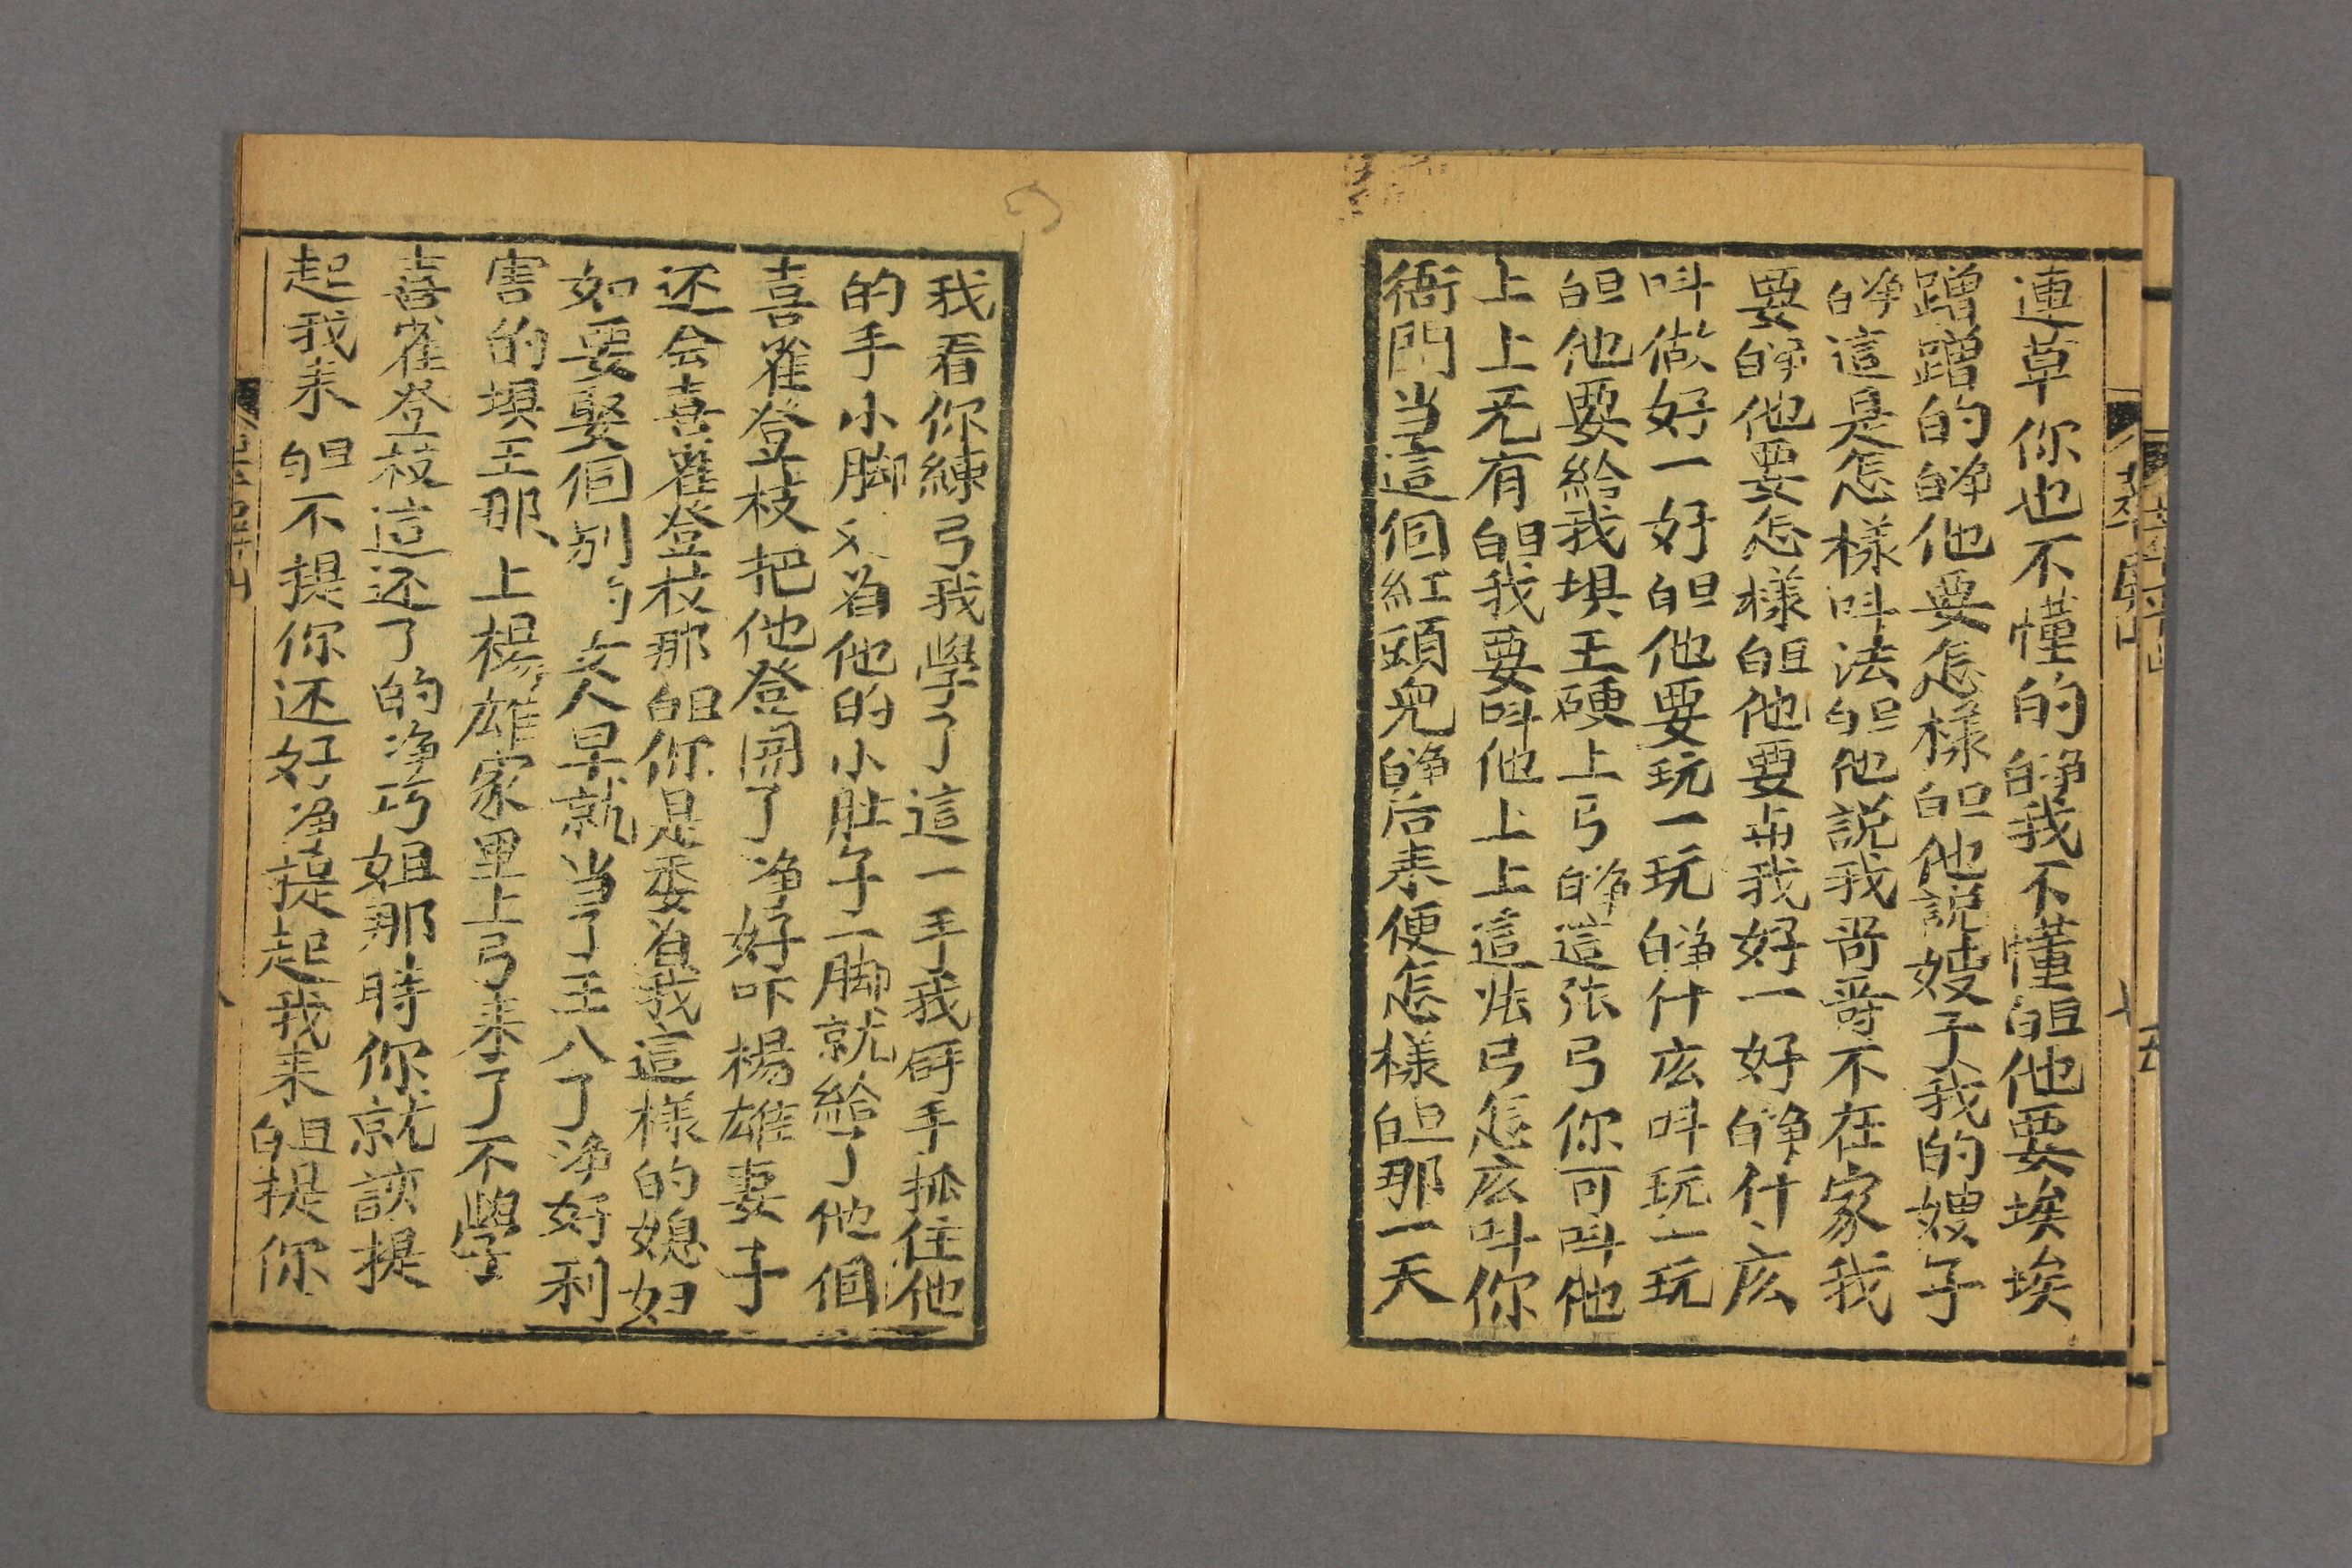 連草你也不懂的白净我不懂白旦他要埃埃
蹭蹭的白净他要怎樣白旦他説嫂子我的嫂子
白净這是怎樣呌法白旦他説我哥哥不在家我
要白净他要怎樣白旦他要与我好一好白净什庅
呌做好一好白旦他要玩一玩白净什庅呌玩一玩
白旦他要給我垻王硬上弓白净這張弓你可呌他
上上旡有白旦我要呌他上上這張弓怎庅呌你
衙門当這個紅頭兒白净后来便怎樣白旦那一天
我看你練弓我學了這一手我 手抓住他
的手小脚 着他的小肚子一脚就給了他個
喜雀登枝把他登開了净好吓楊雄妻子
还会喜雀登枝那白旦你是委着我這樣的媳妇
如要娶個别的女人早就当了王八了净好利
害的垻王那上楊雄家里上弓来了不學
喜雀登枝這还了的净巧姐那時你就該提
起我来白旦不提你还好净提起我来白旦提你